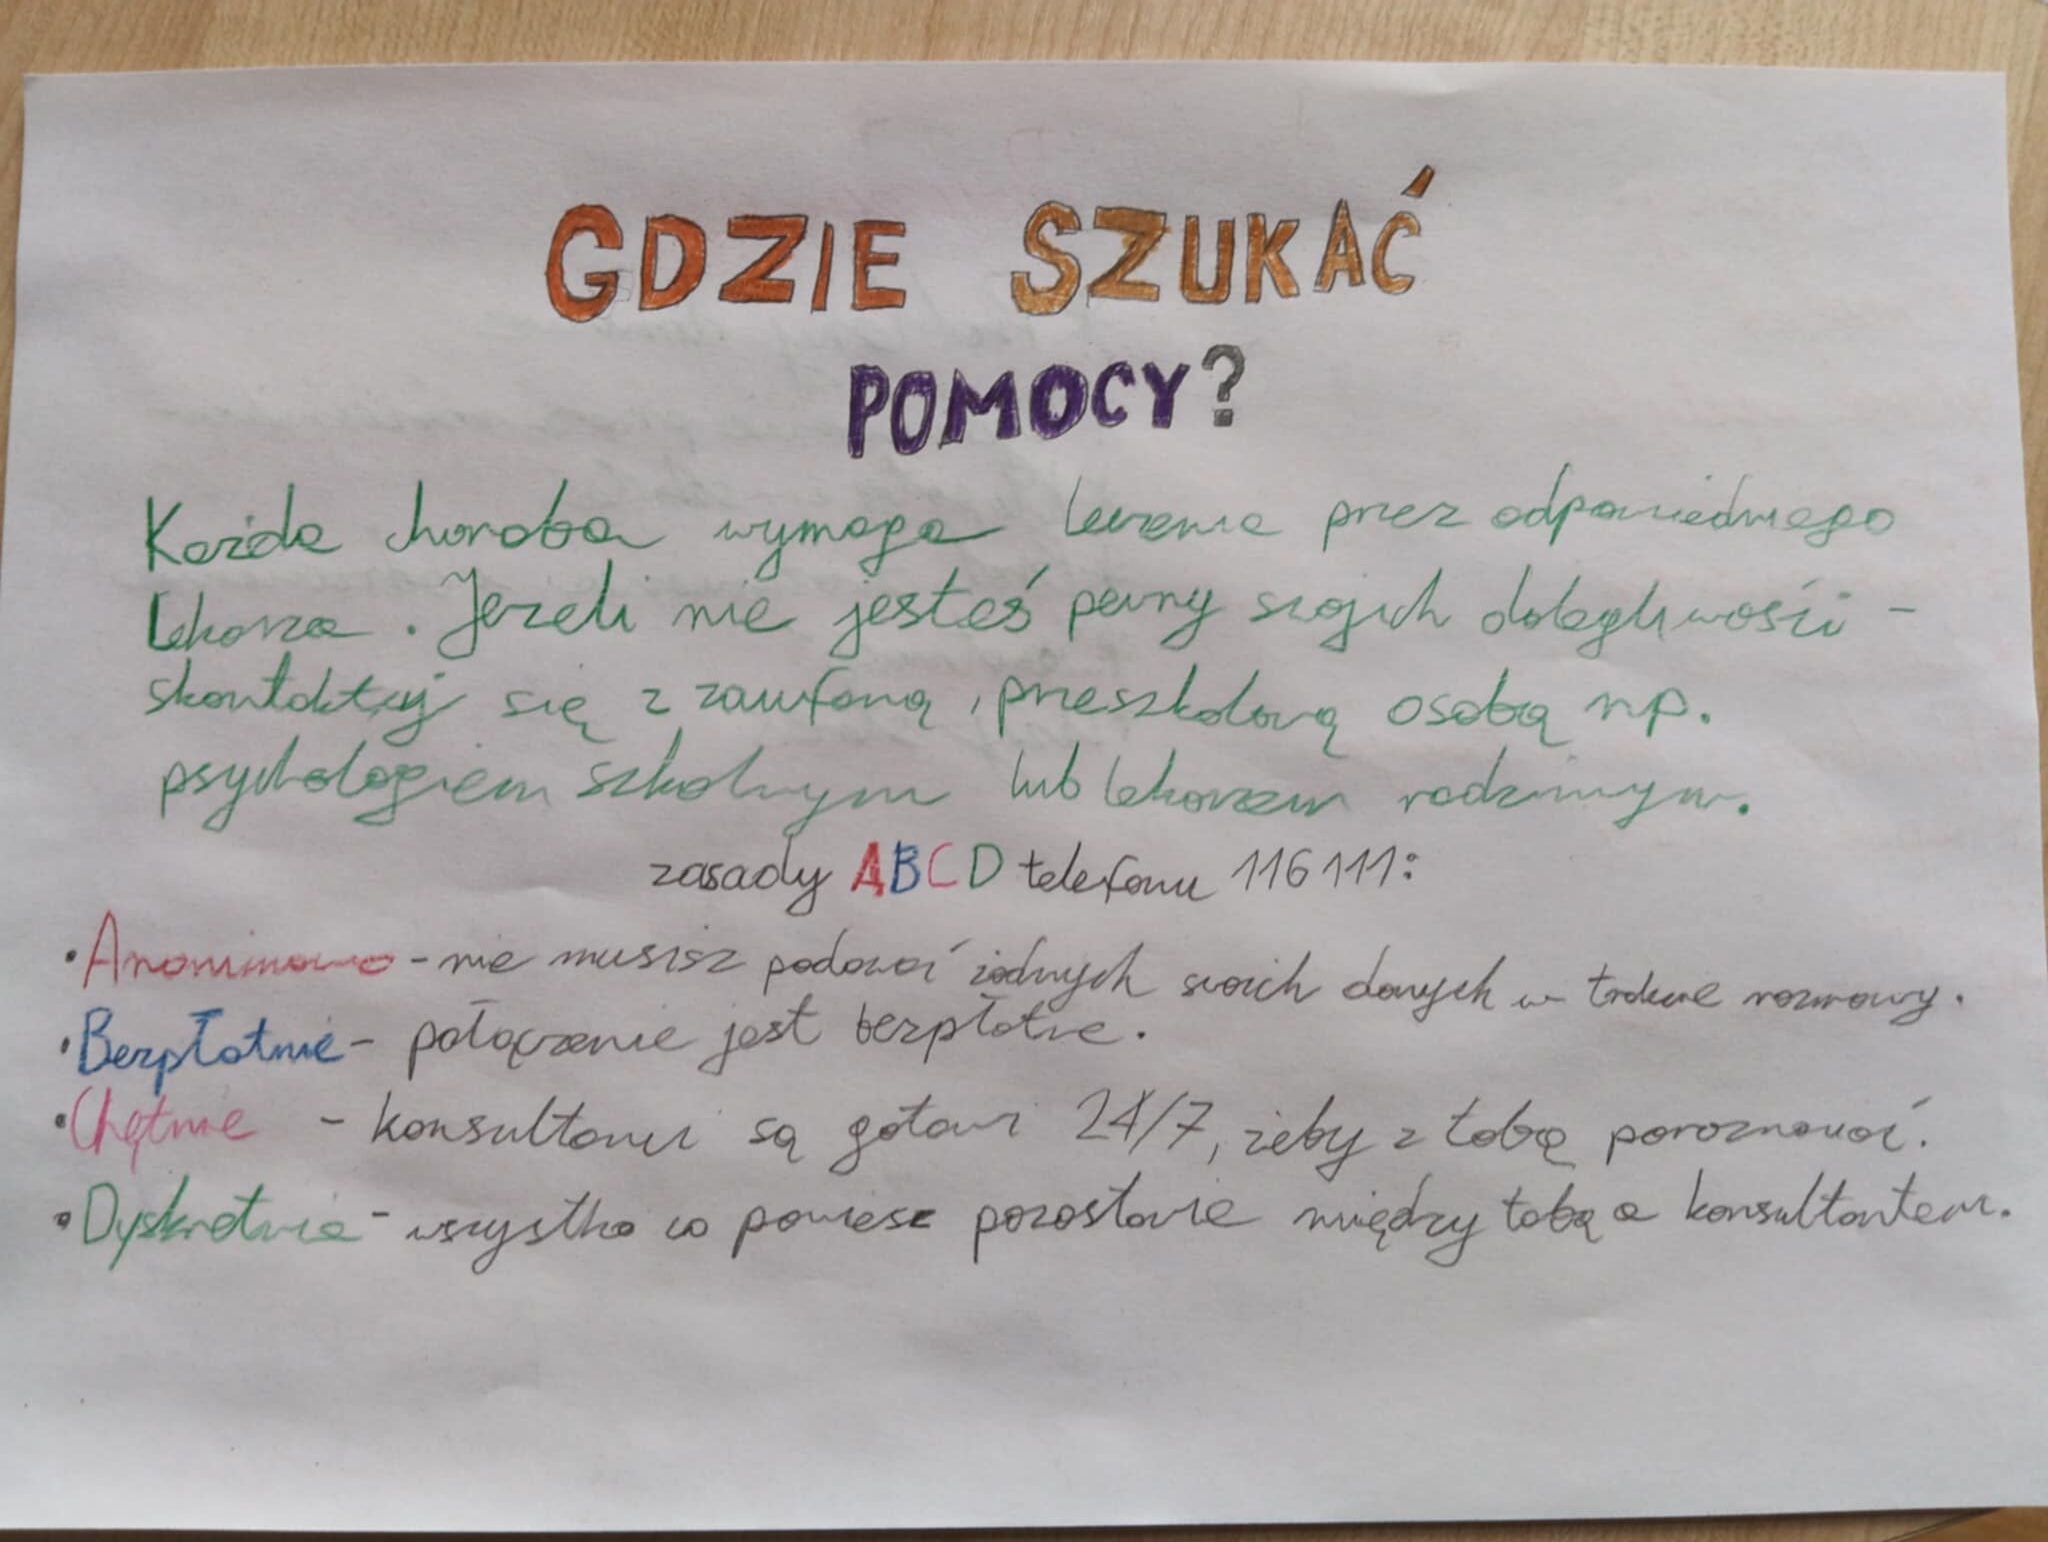 GDZIE SZUKAĆ
POMOCY?
Każda choroba wymaga leczenia przez odpowiedniego
lekarza. Jeżeli nie jesteś pewny swojich dolegliwości -
skontaktuj się z zaufaną, przeszkoloną osobą np.
psychologiem szkolnym lub lekarzem rodzinnym.
zasady ABCD telefonu 116111:
• Anonimowo - nie musisz podawać żadnych swoich danych w trakcie rozmowy.
• Bezpłatnie - połączenie jest bezpłatne.
• Chętnie - konsultanci są gotowi 24/7, żeby z tobą porozmawiać.
• Dyskretnie - wszystko co powiesz pozostanie między tobą a konsultantem.